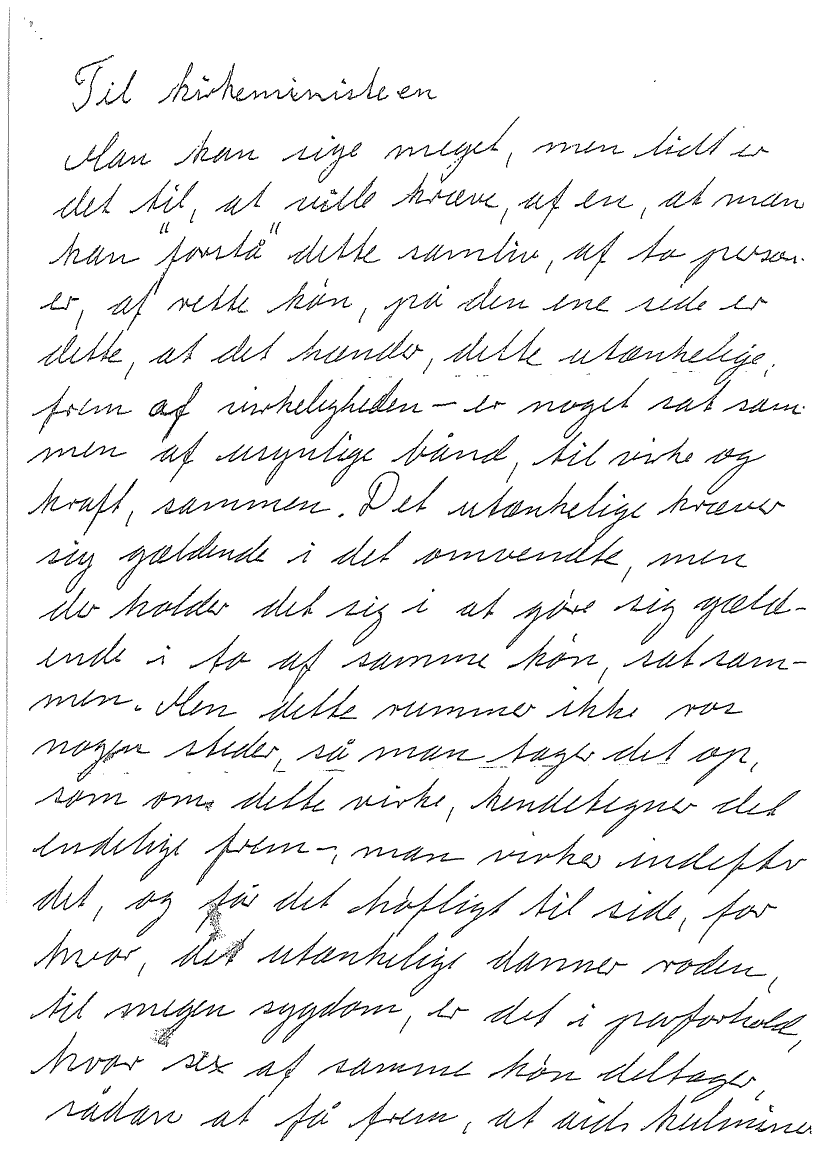 Til kirkeministeren
Man kan sige meget, men lidt er
det til, at ville kræve, af en, at man
kan "forstå" dette samliv, af to person-
er, af rette køn, på den ene side er
dette, at det hænder, dette utænkelige,
frem af virkeligheden - er noget sat sam-
men af usynlige bånd, til virke og
kraft, sammen. Det utænkelige kræver
sig gældende i det omvendte, men
der holder det sig i at gøre sig gæld-
ende i to af samme køn, sat sam-
men. Men dette rummer ikke ros
nogen steder, så man tager det op,
som om dette virke, kendetegner det
endelige frem-, man virker indefter
det, og får det høfligt til side, for
hvor, det utænkelige danner roden,
til megen sygdom, er det i parforhold,
hvor sex af samme køn deltager,
sådan at få frem, at aids kulminer